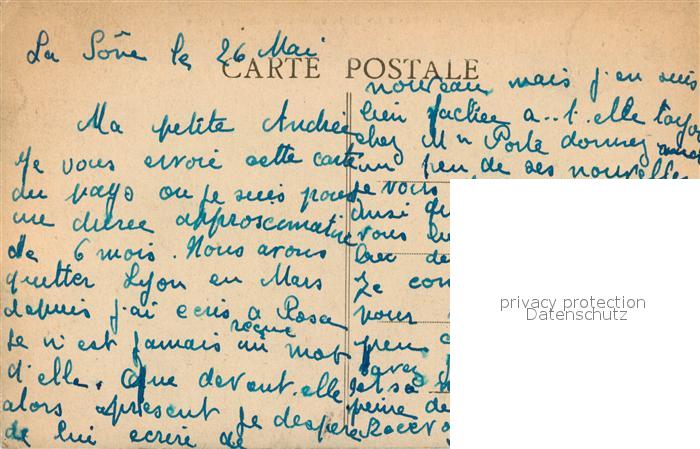 La Sône le 26 Mai
CARTE POSTALE
Ma petite Andrée
Je vous envoie cette carte
du pays ou je suis pour
une durée approscimative
de 6 mois. Nous avons
quitter Lyon en Mars
depuis j'ai ecris a Rosa
Je n'est jamais reçue un mot
d'elle. Que devent.elle
alors apresent Je despere
de lui ecrire de
nouveau mais j'en suis
bien fachée a..t.elle
chez Mr Porte donnez
un peu de ses nouvelles
Je vous
ainsi
vous
Lac de
Je
pour
peus

et sa
peine de
privacy protection
Datenschutz